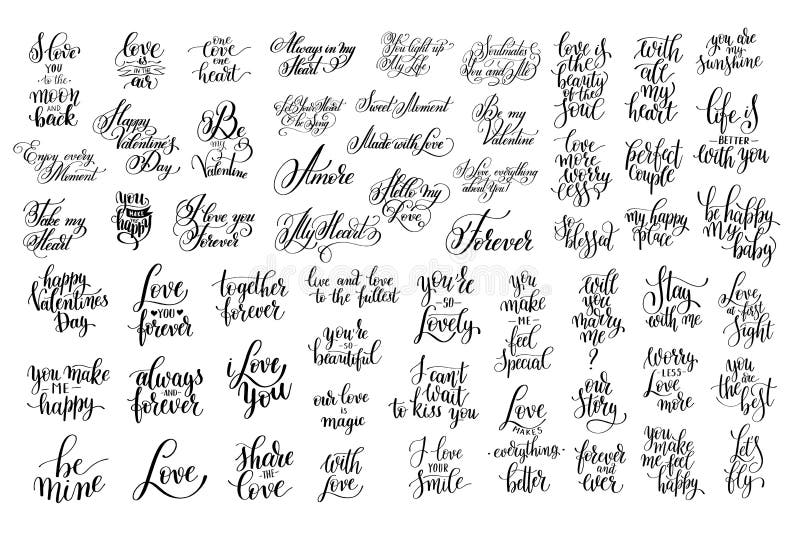 I love
YOU
to the
moon
AND
back
love
is
IN THE
air
one
love
one
heart
Always in my
Heart
You light up
My Life
Soulmates
You and Me
love is
the
beauty
of the
soul
with
all
my
heart
you are
my
sunshine
Happy
Valentine's
Day
Be
MY
Valentine
Let Your Heart
be Song
Sweet Moment
Be my
Valentine
life is
- BETTER -
with you
Enjoy every
Moment
Made with Love
Amore
I Love everything
about You!
love
more
worry
less
perfect
couple
Take my
Heart
you
MAKE
ME
happy
I love you
Forever
Hello my
Love
My Heart
Forever
so
blessed
my happy
place
be happy
my
baby
happy
Valentines
Day
Love
YOU
forever
together
forever
live and love
to the fullest
you're
- SO -
Lovely
you
make
ME
feel
special
will
you
marry
me
?
Stay
with me
Love
at first
Sight
you make
- ME -
happy
always
- AND -
forever
i Love
You
you're
- SO -
beautiful
our love
is
magic
I can't
wait
to kiss you
Love
MAKES
everything
better
our
Story
worry
LESS
Love
more
you
are
the
best
be
mine
Love
share
- THE -
love
with
Love
I love
YOUR
Smile
forever
and
ever
you
make
me feel
happy
Let's
fly